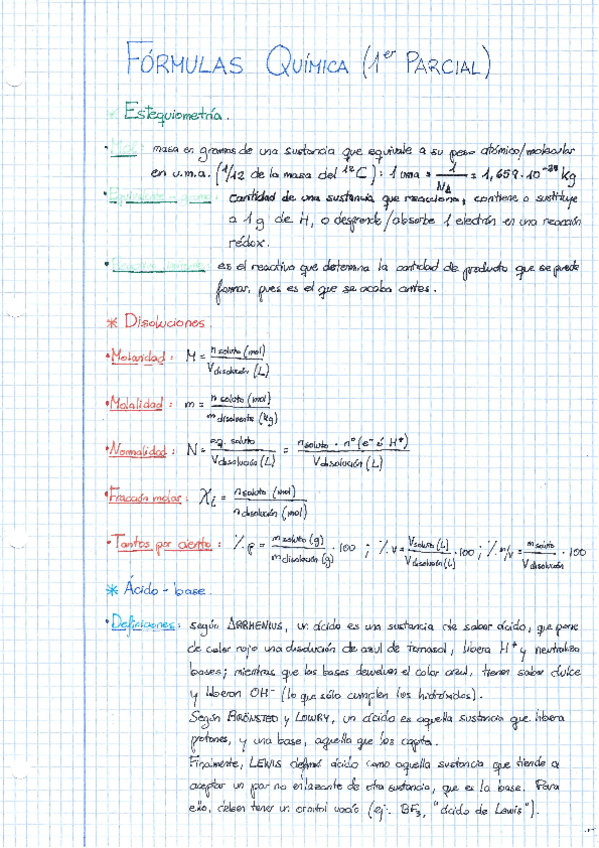 FÓRMULAS QUÍMICA (1er PARCIAL)
* Estequiometría.
• Mol: masa en gramos de una sustancia que equivale a su peso atómico/molecular
en u.m.a. (1/12 de la masa del 12C): 1 uma = 1/NA = 1,659·10-28 kg
• cantidad de una sustancia que reacciona, contiene o sustituye
a 1 g de H, o desprende/absorbe 1 electrón en una reacción
rédox.
• Reactivo limitante: es el reactivo que determina la cantidad de producto que se puede
formar, pues es el que se acaba antes.
* Disoluciones.
• Molaridad: M = n soluto (mol) / V disolución (L)
• Molalidad: m = n soluto (mol) / m disolvente (kg)
• Normalidad: N = eq. soluto / V disolución (L) = n soluto · nº (e- ó H+) / V disolución (L)
• Fracción molar: Xi = n soluto (mol) / n disolución (mol)
• Tantos por ciento: % p = m soluto (g) / m disolución (g) · 100 ; % v = V soluto (L) / V disolución (L) · 100 ; % m/v = m soluto / V disolución · 100
* Ácido-base.
• Definiciones: según ARRHENIUS, un ácido es una sustancia de sabor ácido, que pone
de color rojo una disolución de azul de tornasol, libera H+ y neutraliza
bases; mientras que las bases devuelven el color azul, tienen sabor dulce
y liberan OH- (lo que sólo cumplen los hidróxidos).
Según BRÖNSTED y LOWRY, un ácido es aquella sustancia que libera
protones, y una base, aquella que los capta.
Finalmente, LEWIS definió ácido como aquella sustancia que tiende a
aceptar un par no enlazante de otra sustancia, que es la base. Para
ello, deben tener un orbital vacío (ej: BF3, "ácido de Lewis").